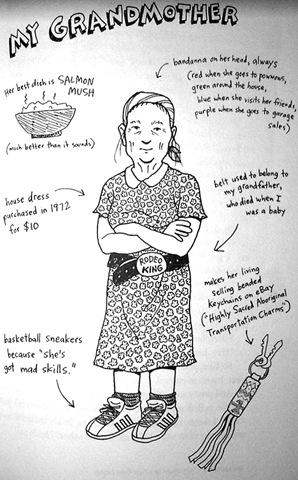 MY GRANDMOTHER
Her best dish is SALMON
MUSH
(much better than it sounds)
bandanna on her head, always
(red when she goes to powwows,
green around the house,
blue when she visits her friends,
purple when she goes to garage
sales)
house dress
purchased in 1972
for $10
belt used to belong to
my grandfather,
who died when I
was a baby
RODEO
KING
makes her living
selling beaded
keychains on eBay
("Highly Sacred Aboriginal
Transportation Charms")
basketball sneakers
because "she's
got mad skills."